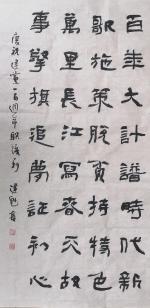 百年大計譜時代新
歌施策脫貧持特色
萬里長江寫春天故
事擎旗追夢証初心
慶祝建黨一百週年